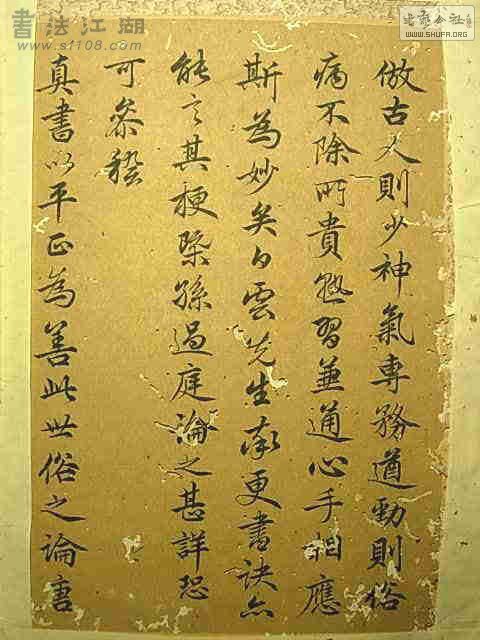 書法江湖
www.s1108.com
書藝公社
WWW.SHUFA.ORG
倣古人則少神氣專務遒勁則俗
病不除所貴熟習兼通心手相應
斯為妙矣白雲先生率更書訣亦
能言其梗槩孫過庭論之甚詳恐
可參稽
真書以平正為善此世俗之論唐